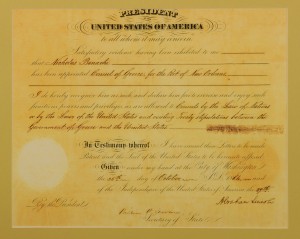 PRESIDENT
OF THE
UNITED STATES OF AMERICA
to all whom it may concern
Satisfactory evidence having been exhibited to me
that Nicholas
has been appointed Consul of Greece for the Port of New Orleans
I do hereby recognize him as such and declare him free to exercise and enjoy such
functions powers and privileges as are allowed to Consuls by the Law of Nations
or by the laws of the United States and existing Treaty stipulations between the
Government of Greece and the United States
In Testimony whereof I have caused these Letters to be made
Patent and the Seal of the United States to be hereunto affixed
Given under my hand at the City of Washington
the day of October A.D.
of the Independence of the United States of America the
By the President
Secretary of State